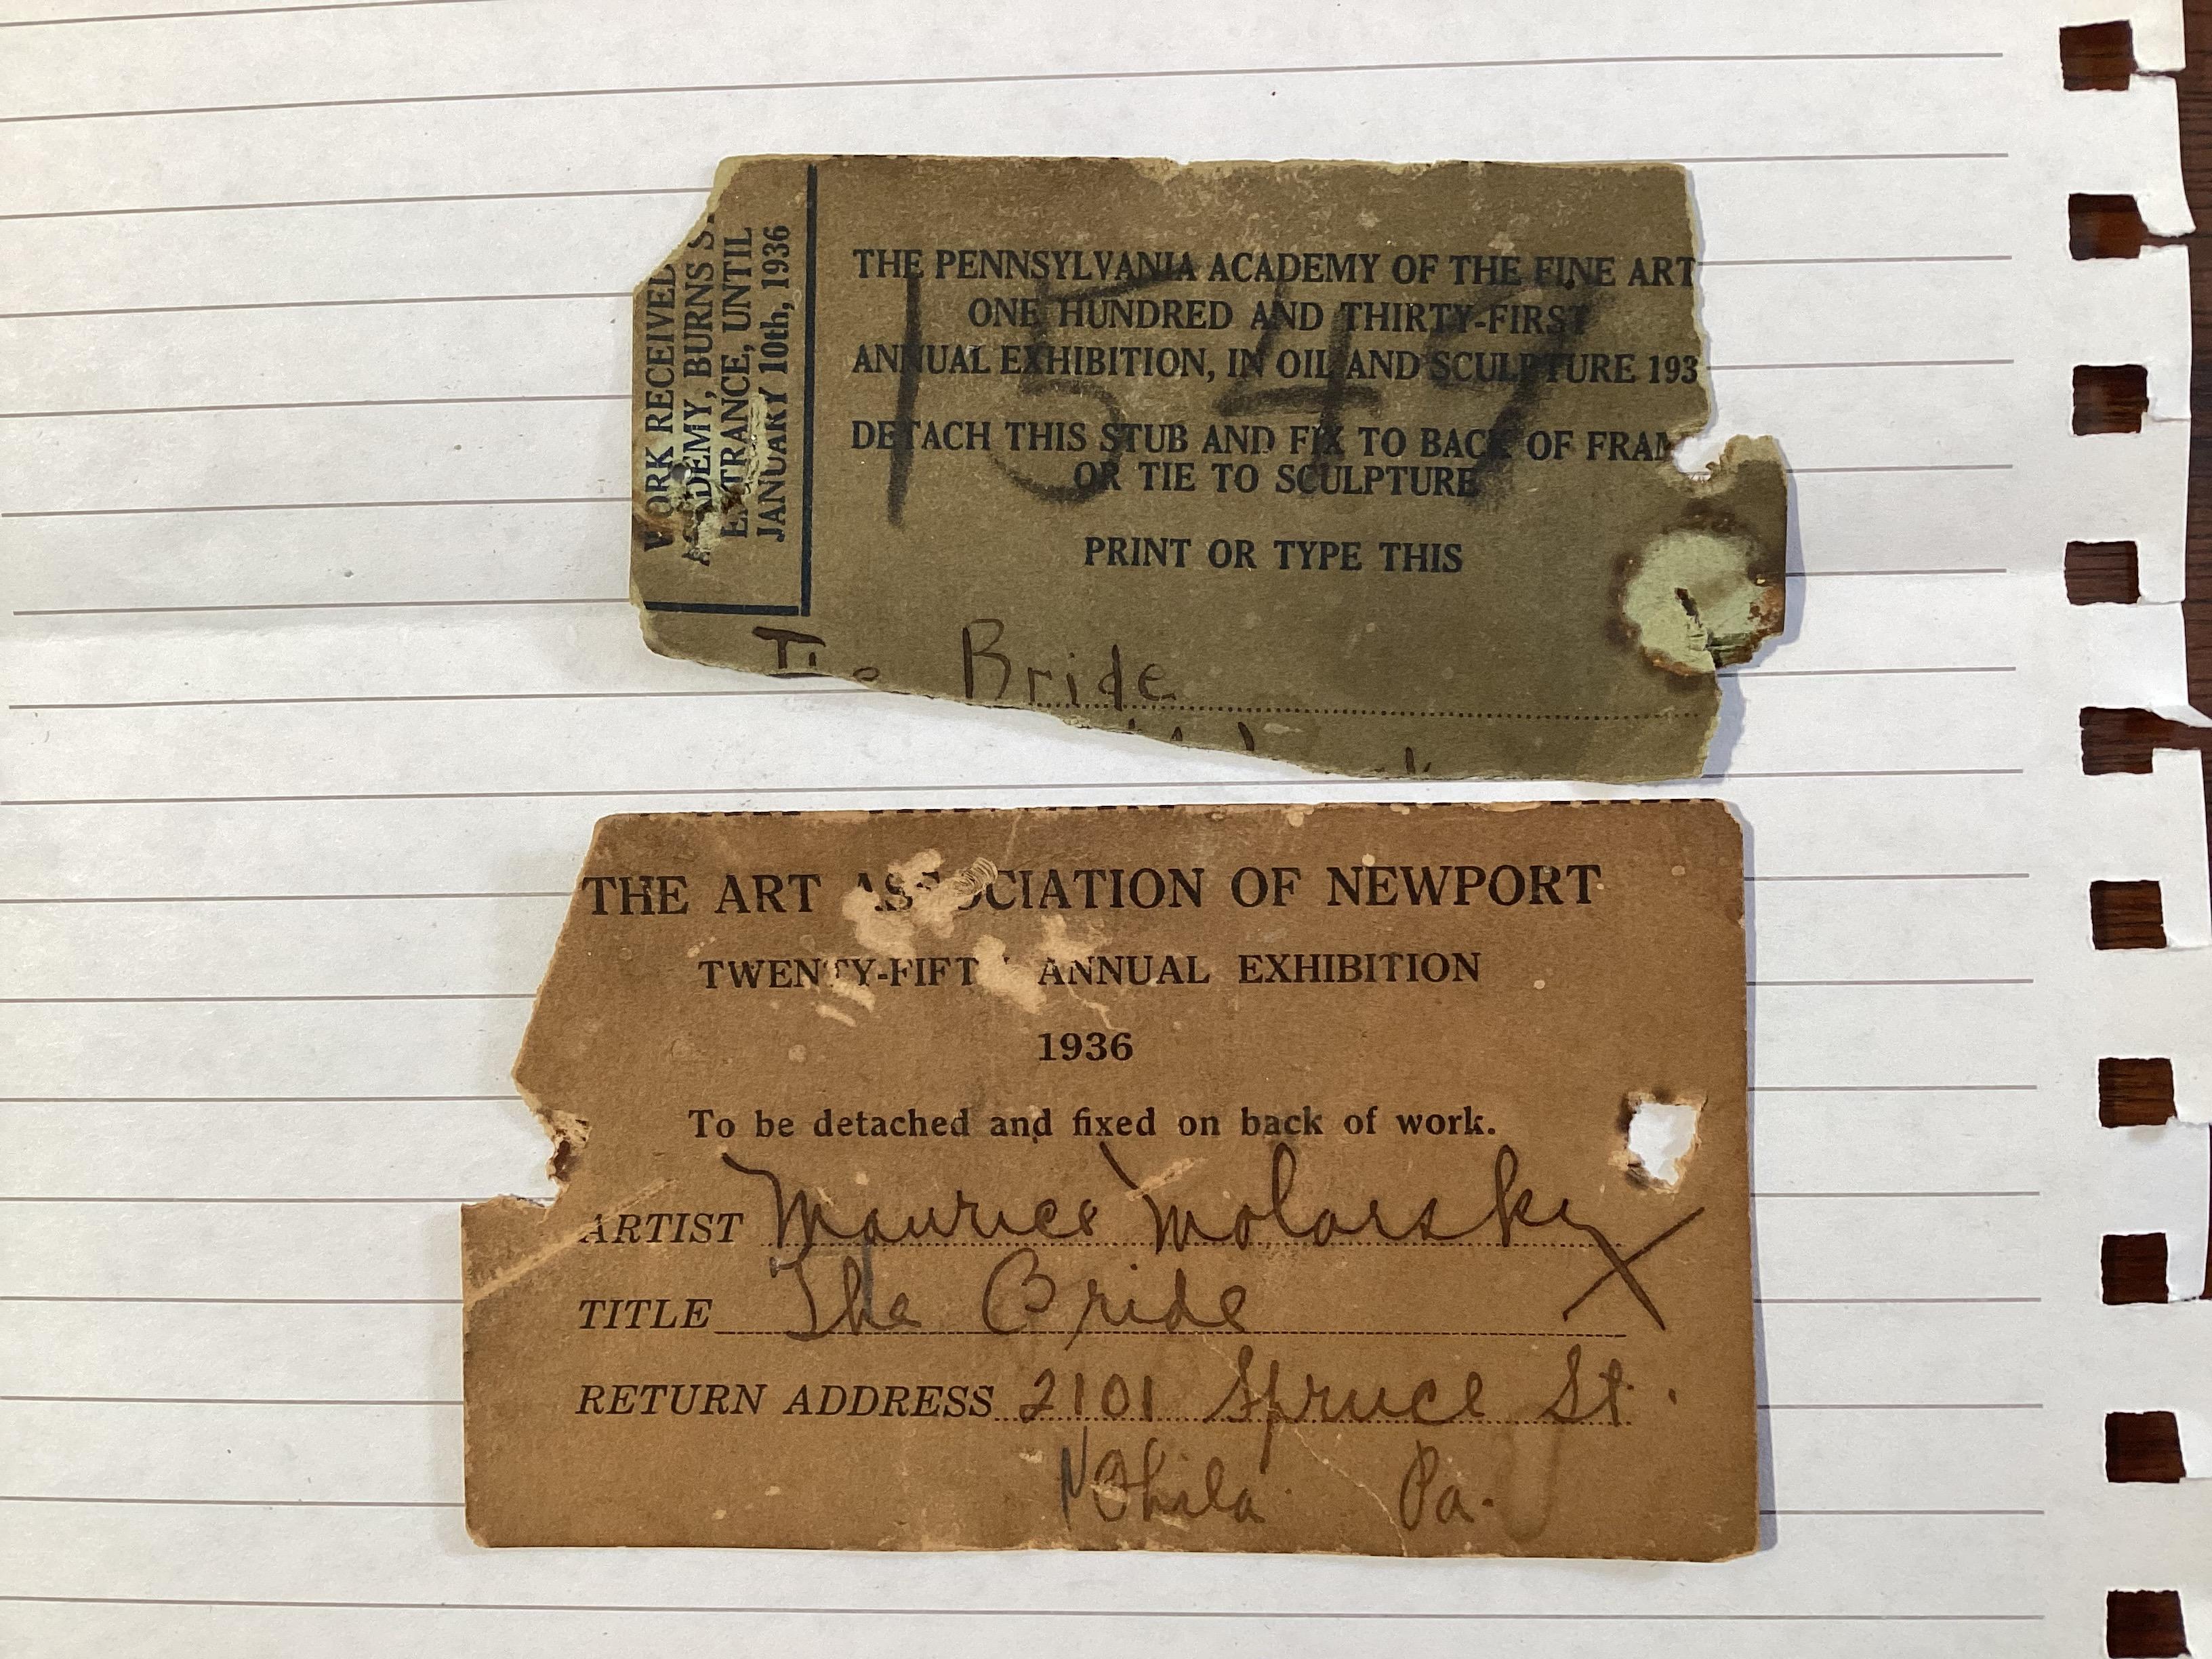 WORK RECEIVED
ACADEMY, BURNS S
ENTRANCE, UNTIL
JANUARY 10th, 1936
THE PENNSYLVANIA ACADEMY OF THE FINE ART
ONE HUNDRED AND THIRTY-FIRST
ANNUAL EXHIBITION, IN OIL AND SCULPTURE 193
1549
DETACH THIS STUB AND FIX TO BACK OF FRAM
OR TIE TO SCULPTURE
PRINT OR TYPE THIS
The Bride
THE ART ASSOCIATION OF NEWPORT
TWENTY-FIFTH ANNUAL EXHIBITION
1936
To be detached and fixed on back of work.
ARTIST Maurice Molarsky
TITLE The Bride
RETURN ADDRESS 2101 Spruce St.
Phila. Pa.